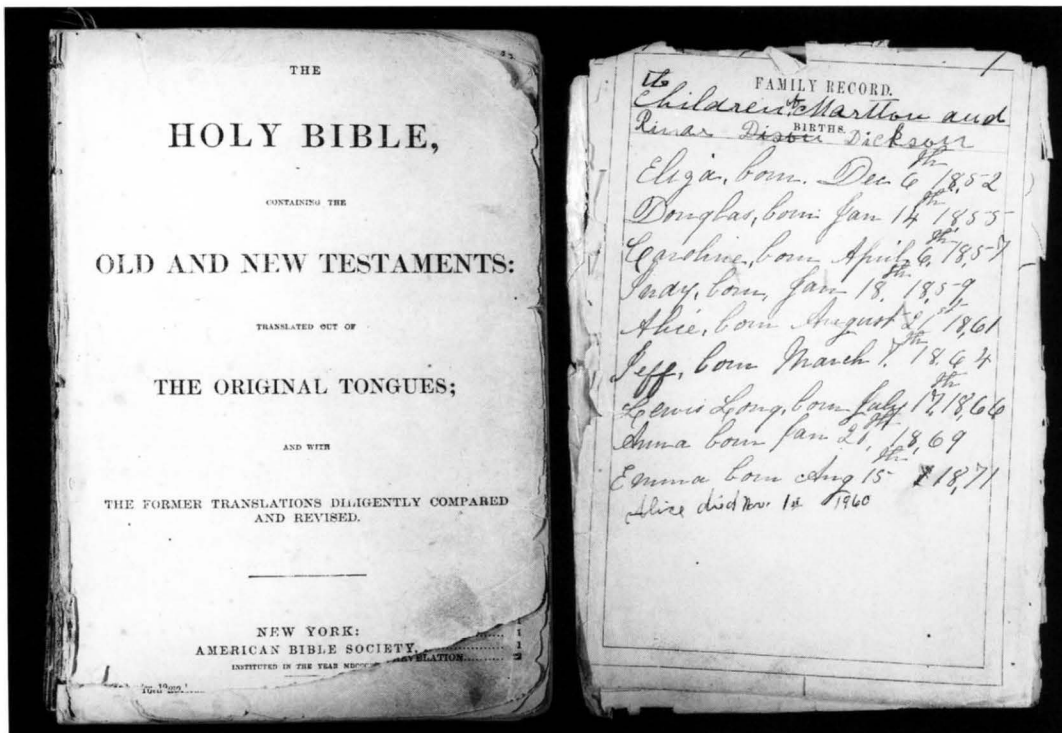 THE
HOLY BIBLE,
CONTAINING THE
OLD AND NEW TESTAMENTS:
TRANSLATED OUT OF
THE ORIGINAL TONGUES;
AND WITH
THE FORMER TRANSLATIONS DILIGENTLY COMPARED
AND REVISED.
NEW YORK:
AMERICAN BIBLE SOCIETY,
INSTITUTED IN THE YEAR
FAMILY RECORD.
the
Children of Martton and
BIRTHS.
Rinar Dison Dickson
Eliza, born. Dec 6th 1852
Douglas, born Jan 14th 1855
Caroline, born April 6th, 1857
Judy, born, Jan 18th, 1859
Alice, born August 21st 1861
Jeff, born March 7th 1864
Lewis Long, born July 17th, 1866
Anna born Jan 21, 1869
Emma born Aug 15th 1871
Alice died Nov. 1st 1960